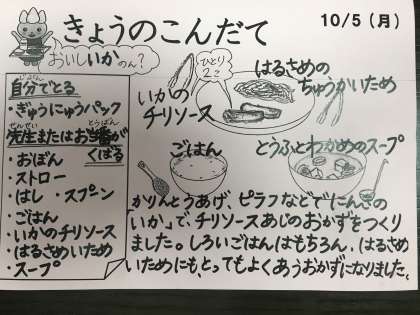 きょうのこんだて
10/5（月）
おいしいかのん？
自分でとる
・ぎゅうにゅうパック
先生またはお当番が
くばる
・おぼん
・ストロー
・はし ・スプーン
・ごはん
・いかのチリソース
・はるさめいため
・スープ
ひとり
2こ
はるさめの
ちゅうかいため
いかの
チリソース
ごはん
とうふとわかめのスープ
かりんとうあげ、ピラフなどで「にん気の
いか」で、チリソースあじのおかずをつくり
ました。しろいごはんはもちろん、はるさめ
いためにも、とってもよくあうおかずになりました。